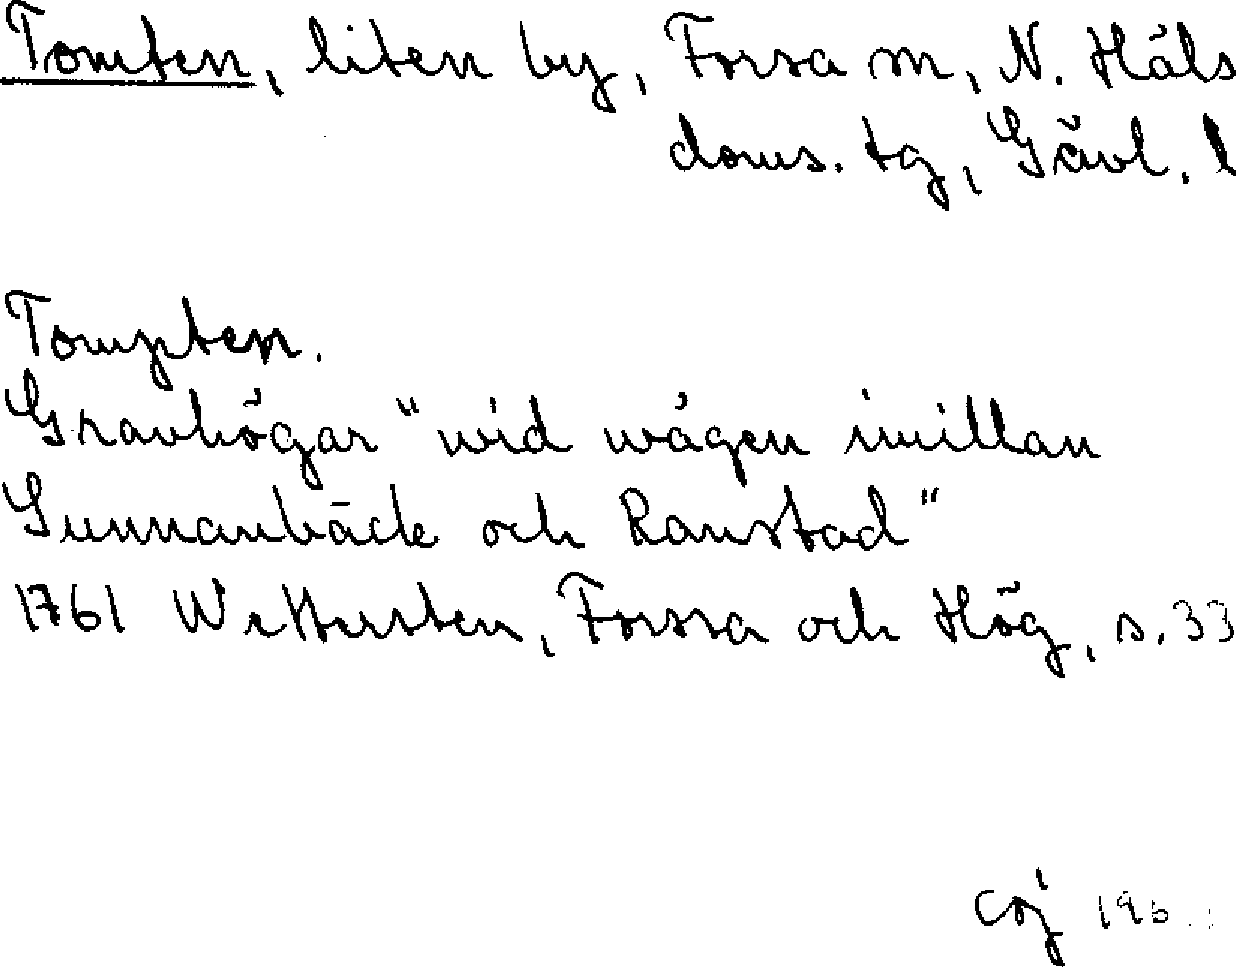 Tomten, liten by, Forsa sn, N. Häls
doms. tg, Gävl. l
Tompten.
Gravhögar "wid wägen imillan
Sunnanbäck och Ranstad"
1761 Wettersten, Forssa och Hög, s. 33
coj 196